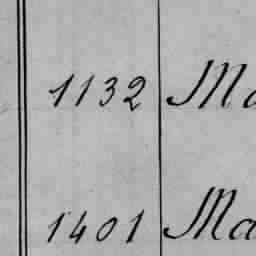 1132 Ma
1401 Ma